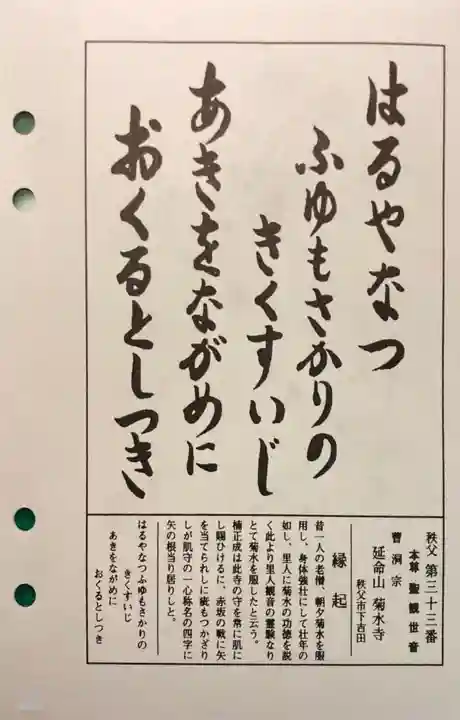 はるやなつ
ふゆもさかりの
きくすいじ
あきをながめに
おくるとしつき
秩父 第三十三番
本尊 聖観世音
曹洞宗
延命山 菊水寺
秩父市下吉田
縁起
昔一人の老僧、朝夕菊水を服
用し、身体強壮にして壮年の
如し、里人に菊水の功徳を説
く此より里人観音の霊験なり
とて菊水を服したと云う。
楠正成は此寺の守を常に肌に
し賜ひけるに、赤坂の戦に矢
を当てられしに疵もつかざり
しが肌守の一心称名の四字に
矢の根当り居りしと。
はるやなつふゆもさかりの
きくすいじ
あきをながめに
おくるとしつき